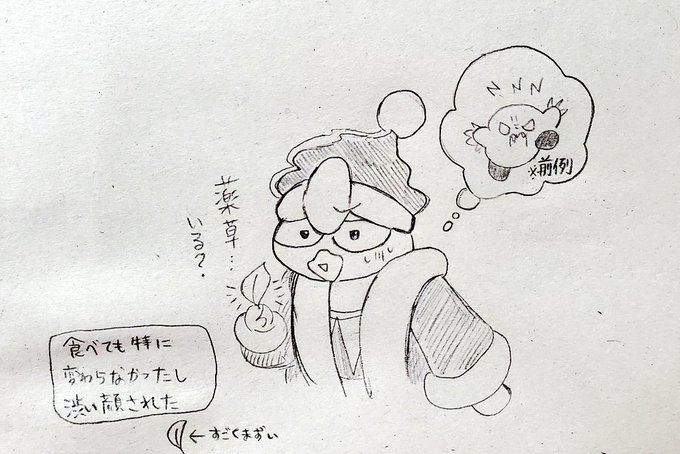 ※前例
薬草…
いる?
食べても特に
変わらなかったし
渋い顔された
←すごくまずい